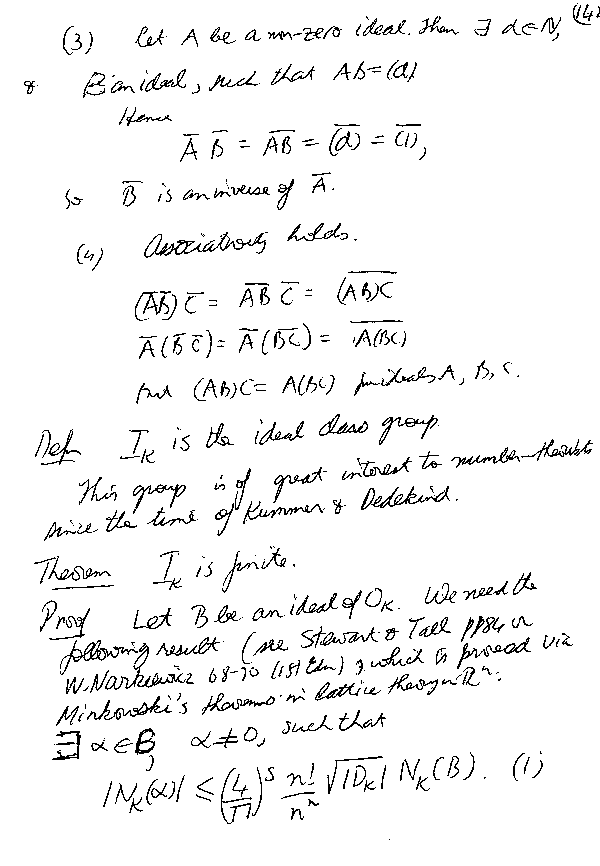 (142
(3) Let A be a non-zero ideal. Then ∃ d∈N,
& B an ideal, such that AB=(d)
Hence
A̅ B̅ = A̅B̅ = (d)̅ = (1)̅,
So B̅ is an inverse of A̅.
(4) Associativity holds.
(A̅B̅) C̅ = A̅B̅ C̅ = (̅A̅B̅)̅C̅
A̅(B̅ C̅) = A̅ (B̅C̅) = A̅(̅B̅C̅)̅
But (AB)C = A(BC) for ideals A, B, C.
Defn I_K is the ideal class group.
This group is of great interest to number-theorists
since the time of Kummer & Dedekind.
Theorem I_K is finite.
Proof Let B be an ideal of O_K. We need the
following result (see Stewart & Tall pp84 or
W. Narkiewicz 68-70 (1st Edn), which is proved via
Minkowski's theorems in lattice theory in R^n:
∃ α∈B, α≠0, such that
|N_K(α)| ≤ (4/π)^s n!/n^n √|D_K| N_K(B). (1)